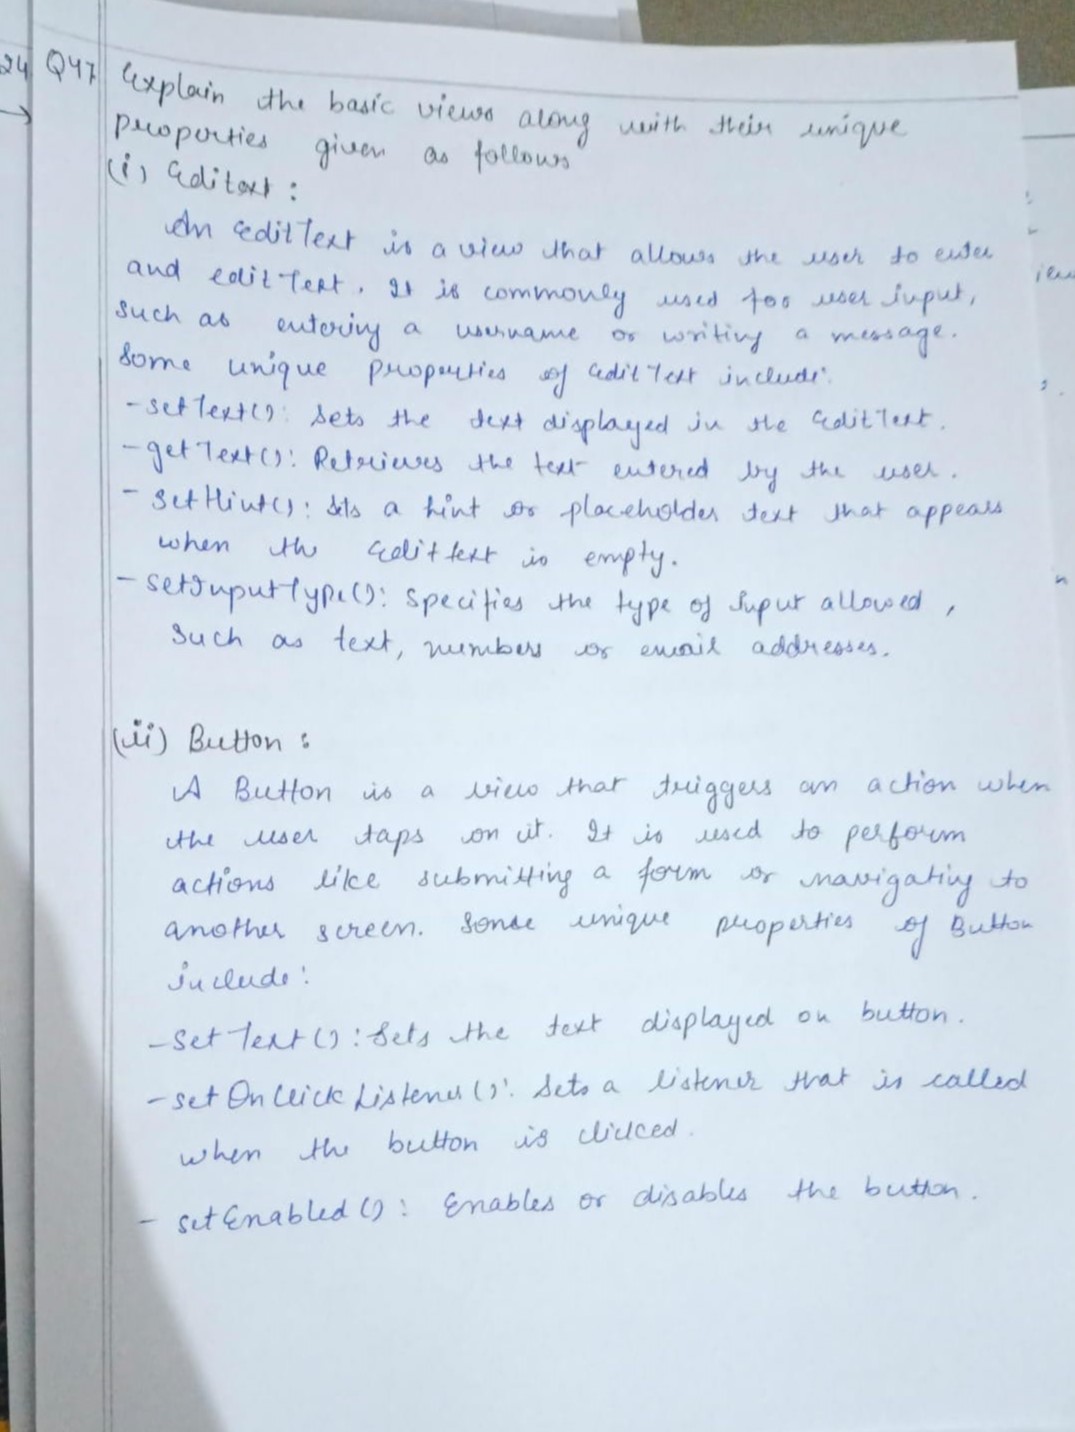 24 Q47 Explain the basic views along with their unique
properties given as follows
(i) Editext :
An EditText is a view that allows the user to enter
and edit Text. It is commonly used for user input,
such as entering a username or writing a message.
Some unique properties of EditText include:
- setText(): Sets the text displayed in the EditText.
- getText(): Retrieves the text entered by the user.
- setHint(): Sets a hint or placeholder text that appears
when the Edittext is empty.
- setInputType(): Specifies the type of Input allowed,
such as text, numbers or email addresses.
(ii) Button :
A Button is a view that triggers an action when
the user taps on it. It is used to perform
actions like submitting a form or navigating to
another screen. Some unique properties of Button
include:
- SetText(): Sets the text displayed on button.
- setOnClickListener(): Sets a listener that is called
when the button is clicked.
- setEnabled(): Enables or disables the button.